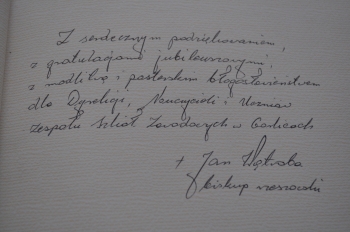 Z serdecznym podziękowaniem,
z gratulacjami jubileuszowymi,
z modlitwą i pasterskim błogosławieństwem
dla Dyrekcji, Nauczycieli i Uczniów
Zespołu Szkół Zawodowych w Gorlicach
+ Jan Wątroba
biskup rzeszowski